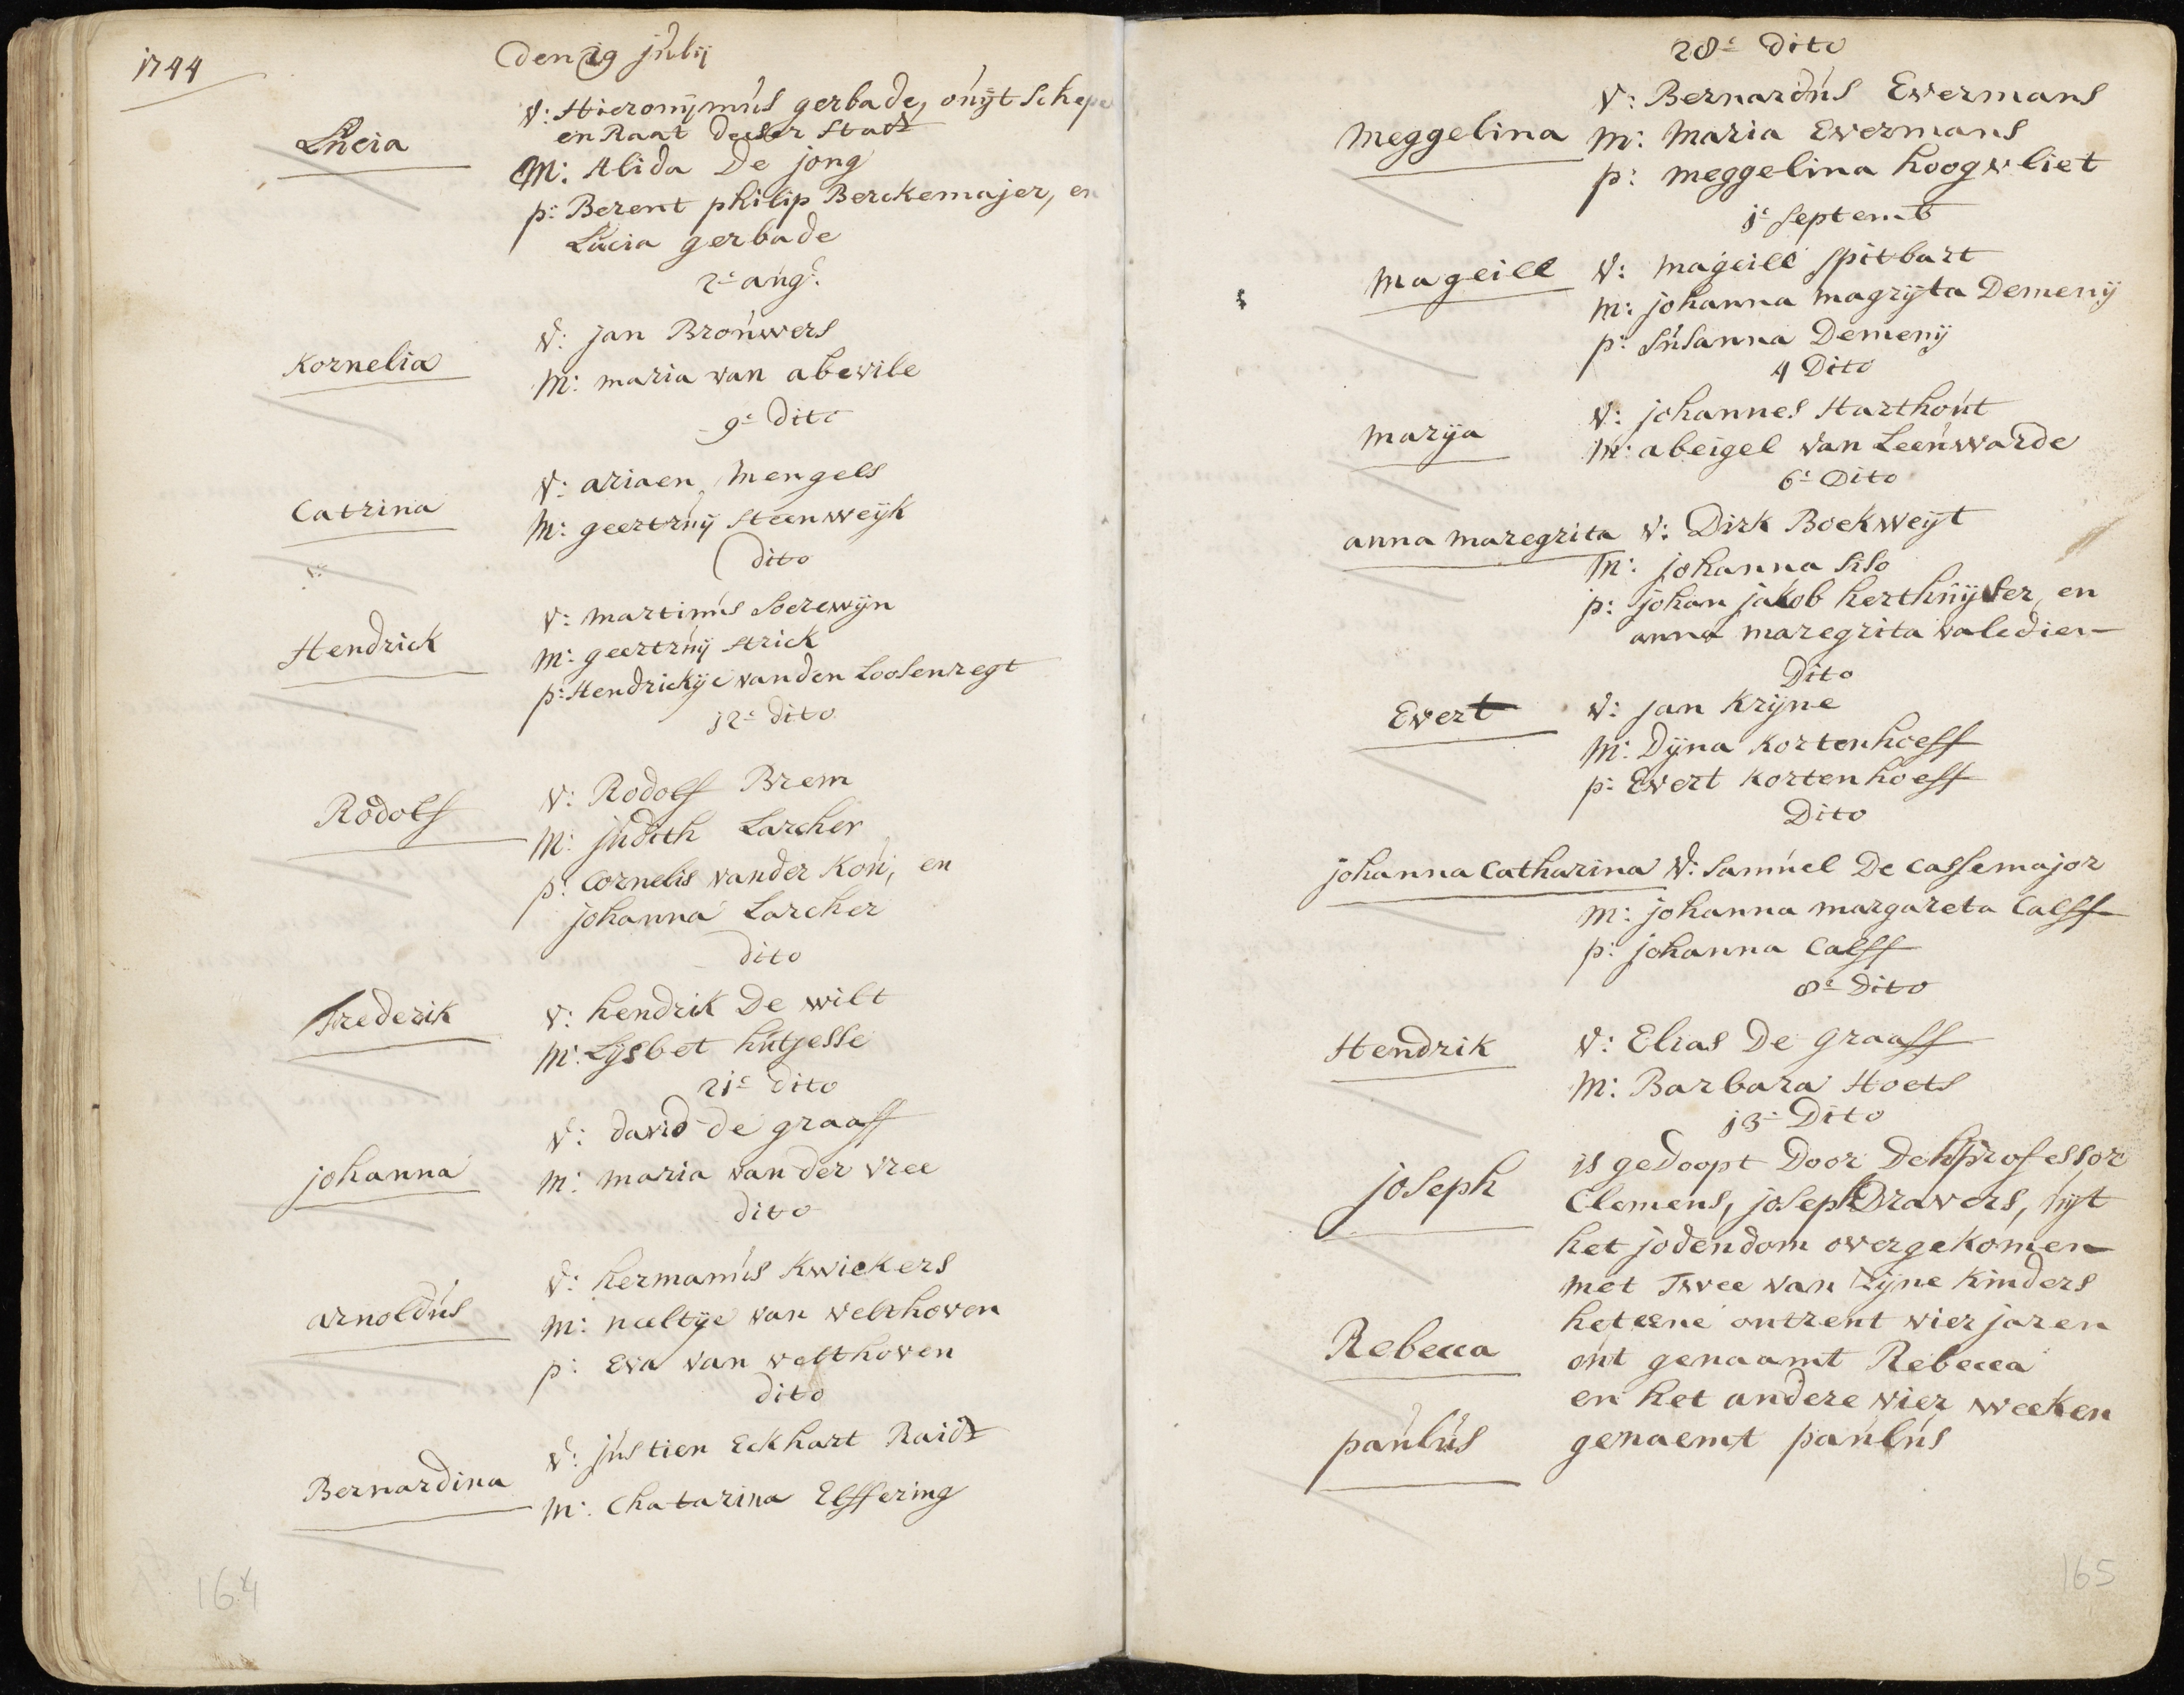 1744
den 19 julij
Lucia
V: Hieronijmús gerbade, oúijt Schepe
en Raat deeser Stadt
M: Alida De jong
p: Berent philip Berckemajer, en
Lúcia gerbade
2e aúg:
Kornelia
V: jan Broúwers
M: maria van abevile
9e dito
Catrina
V: ariaen Mengels
M: geertrúij Steenweijk
dito
Hendrick
V: martinús Soerewijn
M: geertrúij Strick
p: Hendrickije vanden Loosenregt
12e dito
Rodolf
V: Rodolf Brem
M: júdith Larcher
p: Cornelis vander Koú, en
johanna Larcher
dito
Frederik
V: hendrik De wilt
M: Lijsbet hútjesse
21e dito
johanna
V: david de graaff
M: maria van der vree
dito
arnoldús
V: hermanús Kwickers
M: neeltije van velthoven
p: Eva van velthoven
dito
Bernardina
V: jústien Eckhart Raidt
M: Chatarina Elffering
164
28e dito
Meggelina
V: Bernardús Evermans
M: Maria Evermans
p: meggelina hoogvliet
1e Septemb
Magleill
V: magiell Spitbart
M: johanna magrijta Demenij
p: Súsanna Demenij
4 Dito
Marija
V: johannes Harthoút
M: abeigel van Leeúwarde
6e Dito
anna maregrita
V: Dirk Boekweijt
M: johanna Silo
p: johan jakob herthúijser, en
anna maregrita valedier
Dito
Evert
V: jan Krijne
M: Dijna Kortenhoeff
p: Evert Kortenhoeff
Dito
johanna Catharina
V: Samúel De Cassemajor
M: johanna margareta Calff
p: johanna Calff
8e Dito
Hendrik
V: Elias De graaff
M: Barbara Hoets
13e Dito
joseph
is gedoopt Door De hr professor
Clemens, joseph Dravers, úijt
het jodendom overgekomen
met Twee van Zijne Kinders
het eene ontrent vier jaren
Rebecca
oút genaamt Rebecca
en het andere vier weeken
paúlús
genaemt paúlús
165